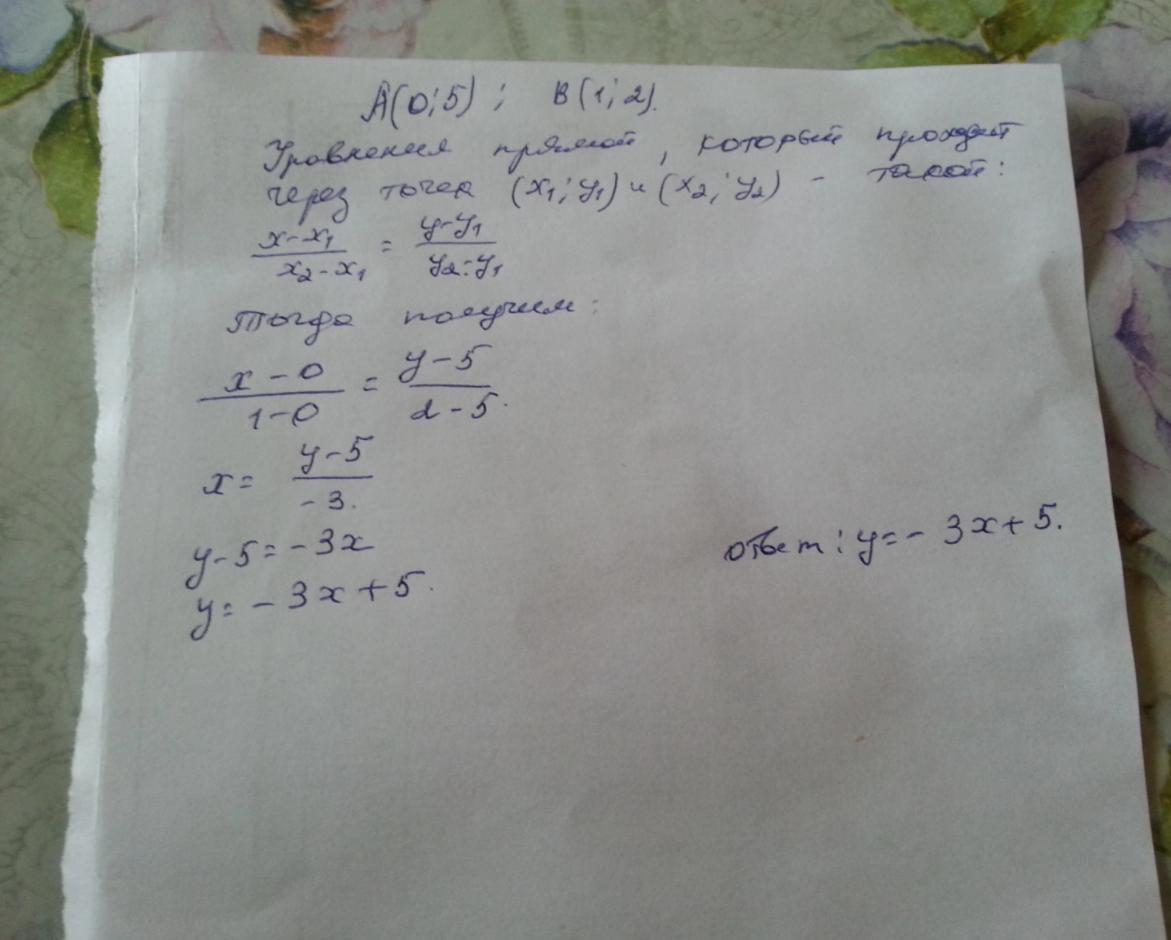 A(0;5); B(1;2).
Уравнения прямой, который проходит
через точек (x₁; y₁) и (x₂; y₂) - такой:
x-x₁/x₂-x₁ = y-y₁/y₂-y₁
Тогда получим:
x-0/1-0 = y-5/2-5.
x = y-5/-3.
y-5=-3x
y=-3x+5.
ответ: y=-3x+5.